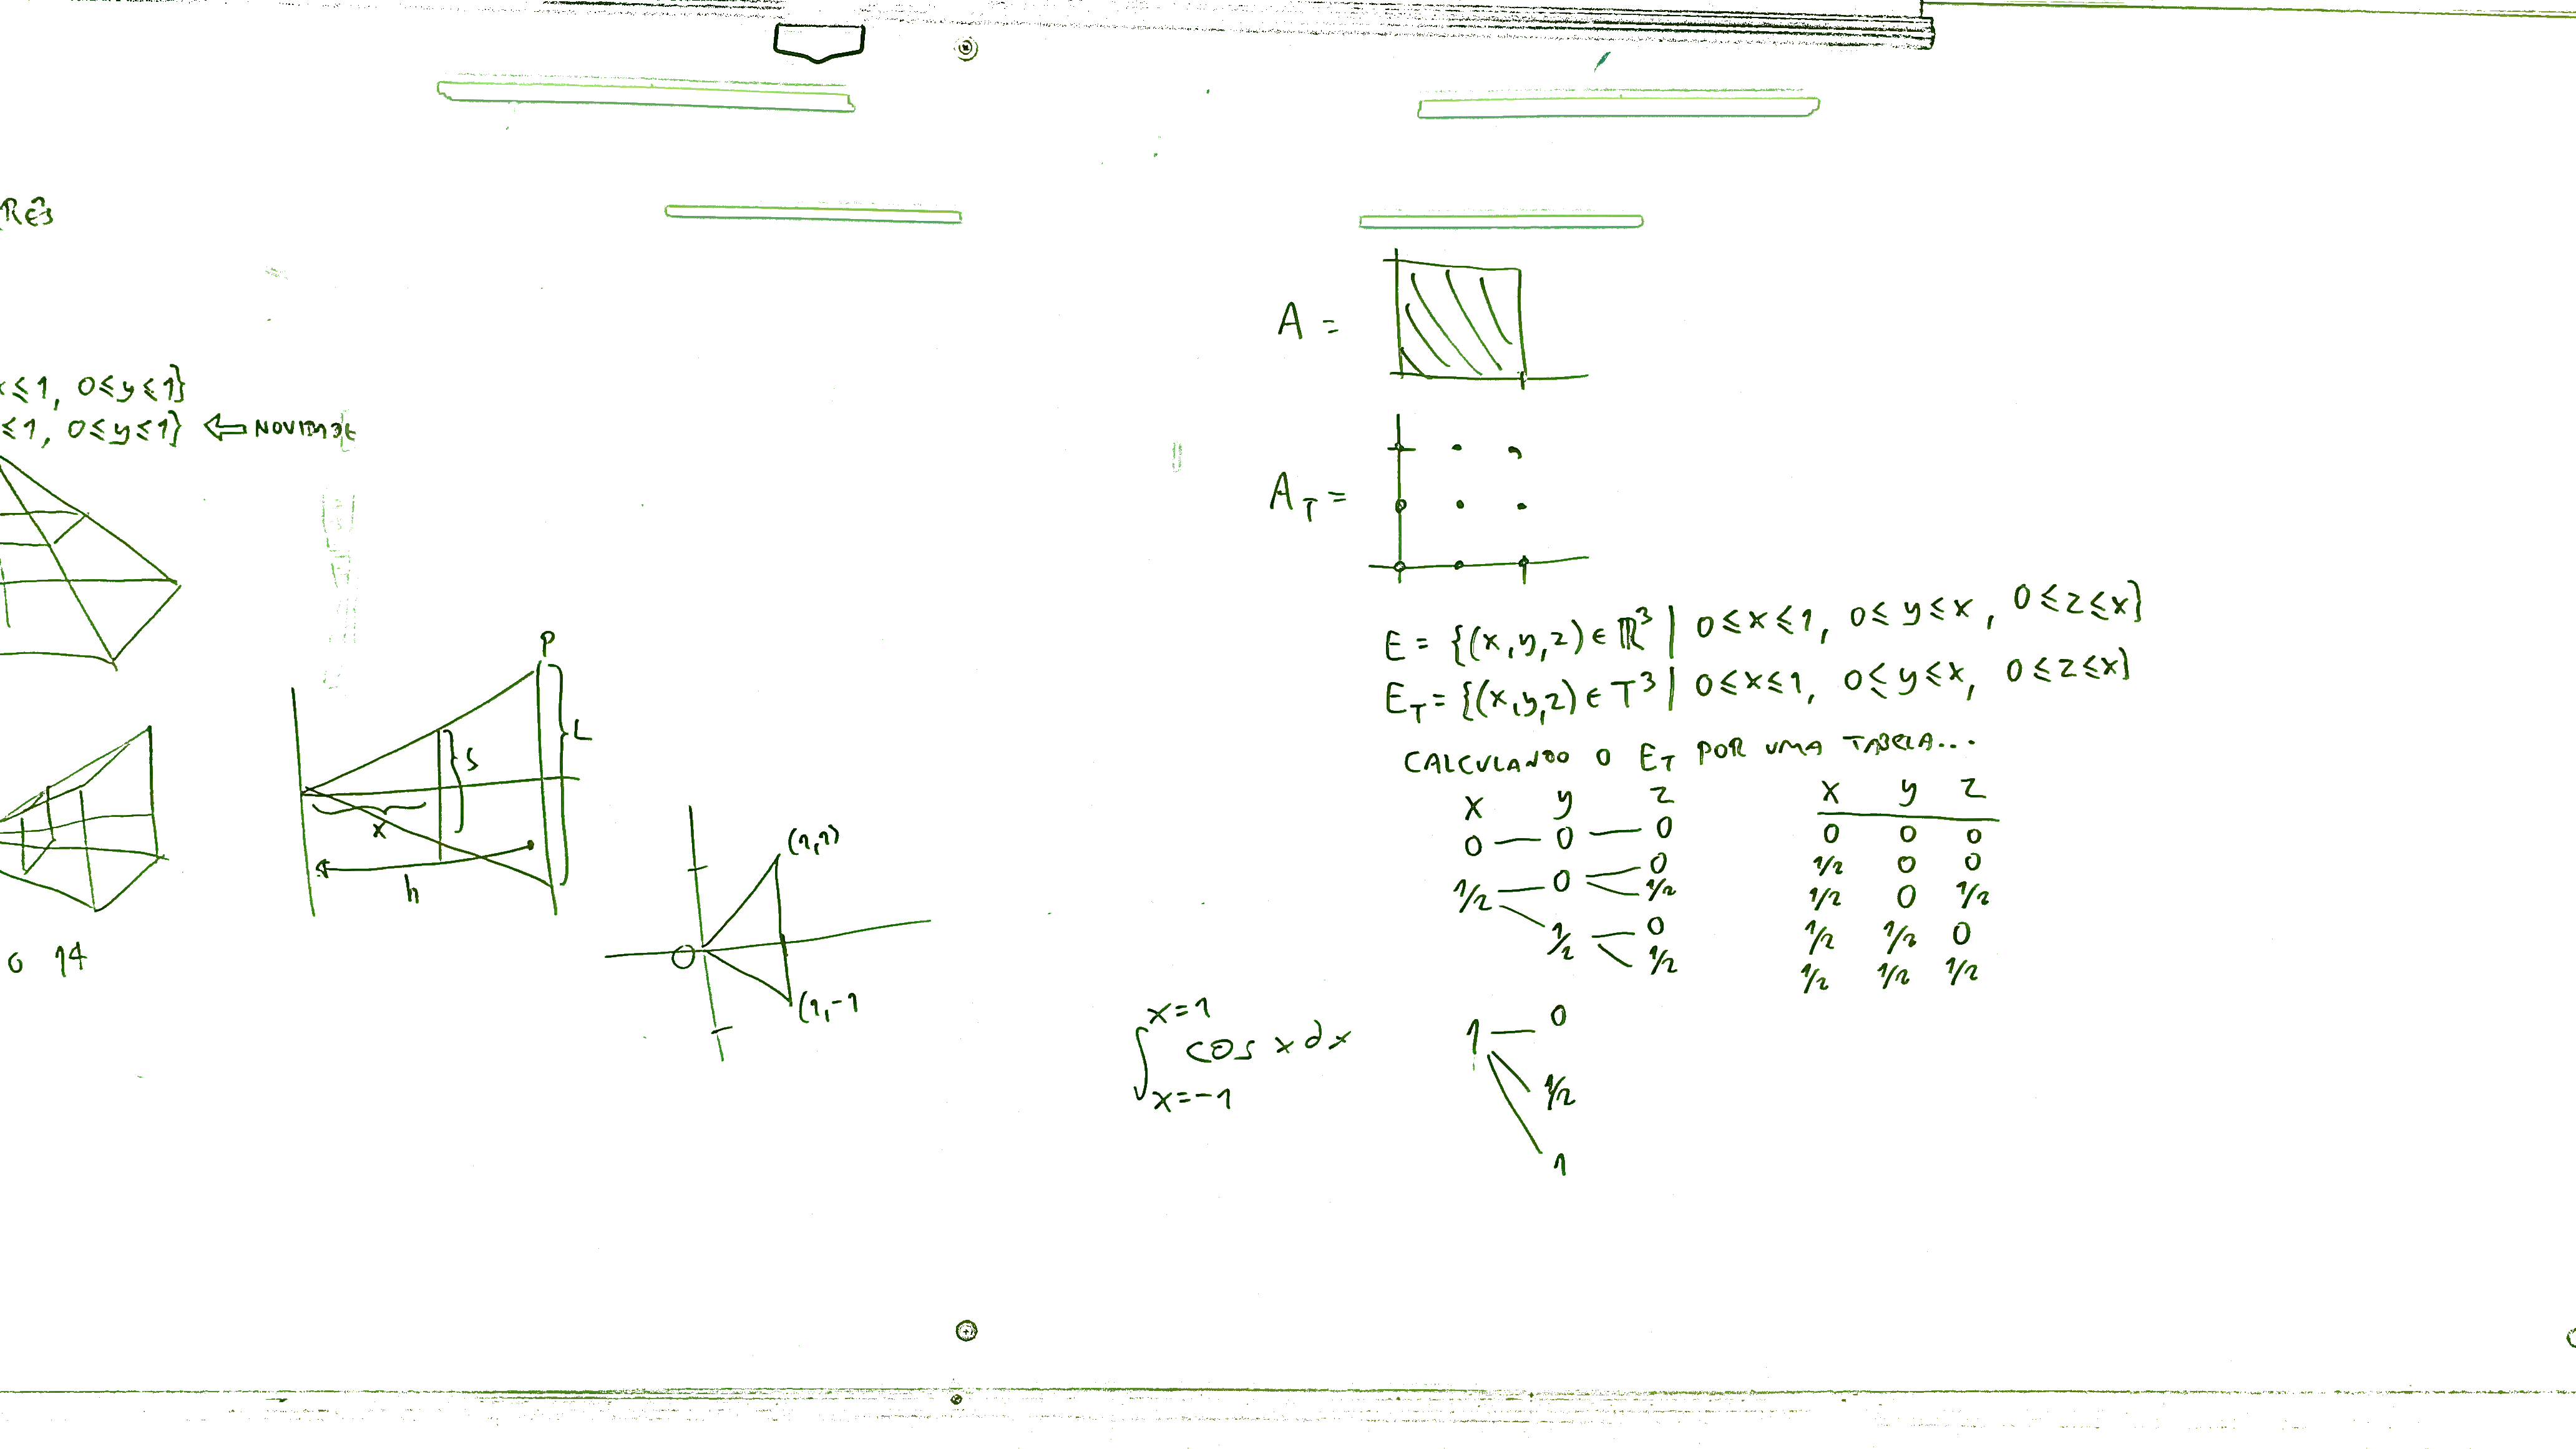 RÊS
x≤1, 0≤y≤1}
≤1, 0≤y≤1} ⇐ NOVIDADE
0 14
P
L
S
x
h
(1,1)
(1,-1
A =
A_T =
E = {(x,y,z) ∈ ℝ³ | 0≤x≤1, 0≤y≤x, 0≤z≤x}
E_T = {(x,y,z) ∈ T³ | 0≤x≤1, 0≤y≤x, 0≤z≤x}
CALCULANDO O E_T POR UMA TABELA...
x y z
0 — 0 — 0
1/2 — 0 — 0
1/2
1/2 — 0
1/2
1 — 0
1/2
1
x y z
0 0 0
1/2 0 0
1/2 0 1/2
1/2 1/2 0
1/2 1/2 1/2
∫_{x=-1}^{x=1} cos x dx